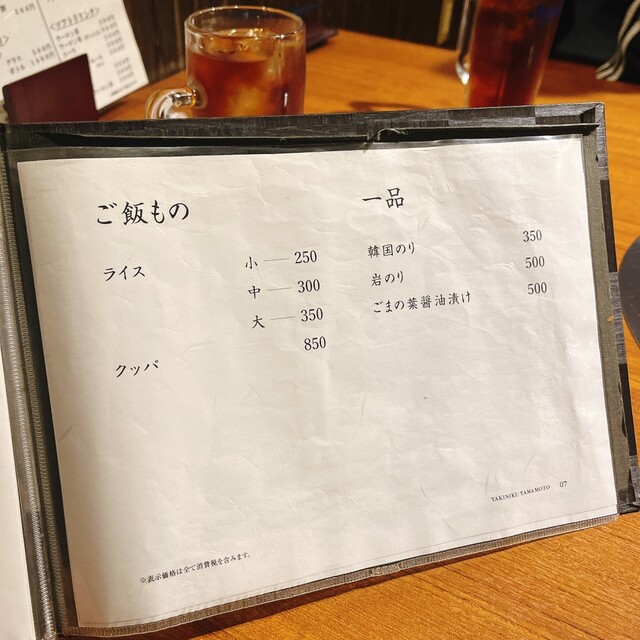 ご飯もの
ライス 小 — 250
中 — 300
大 — 350
クッパ 850
一品
韓国のり 350
岩のり 500
ごまの葉醤油漬け 500
※表示価格は全て消費税を含みます。
YAKINIKU YAMAMOTO 07